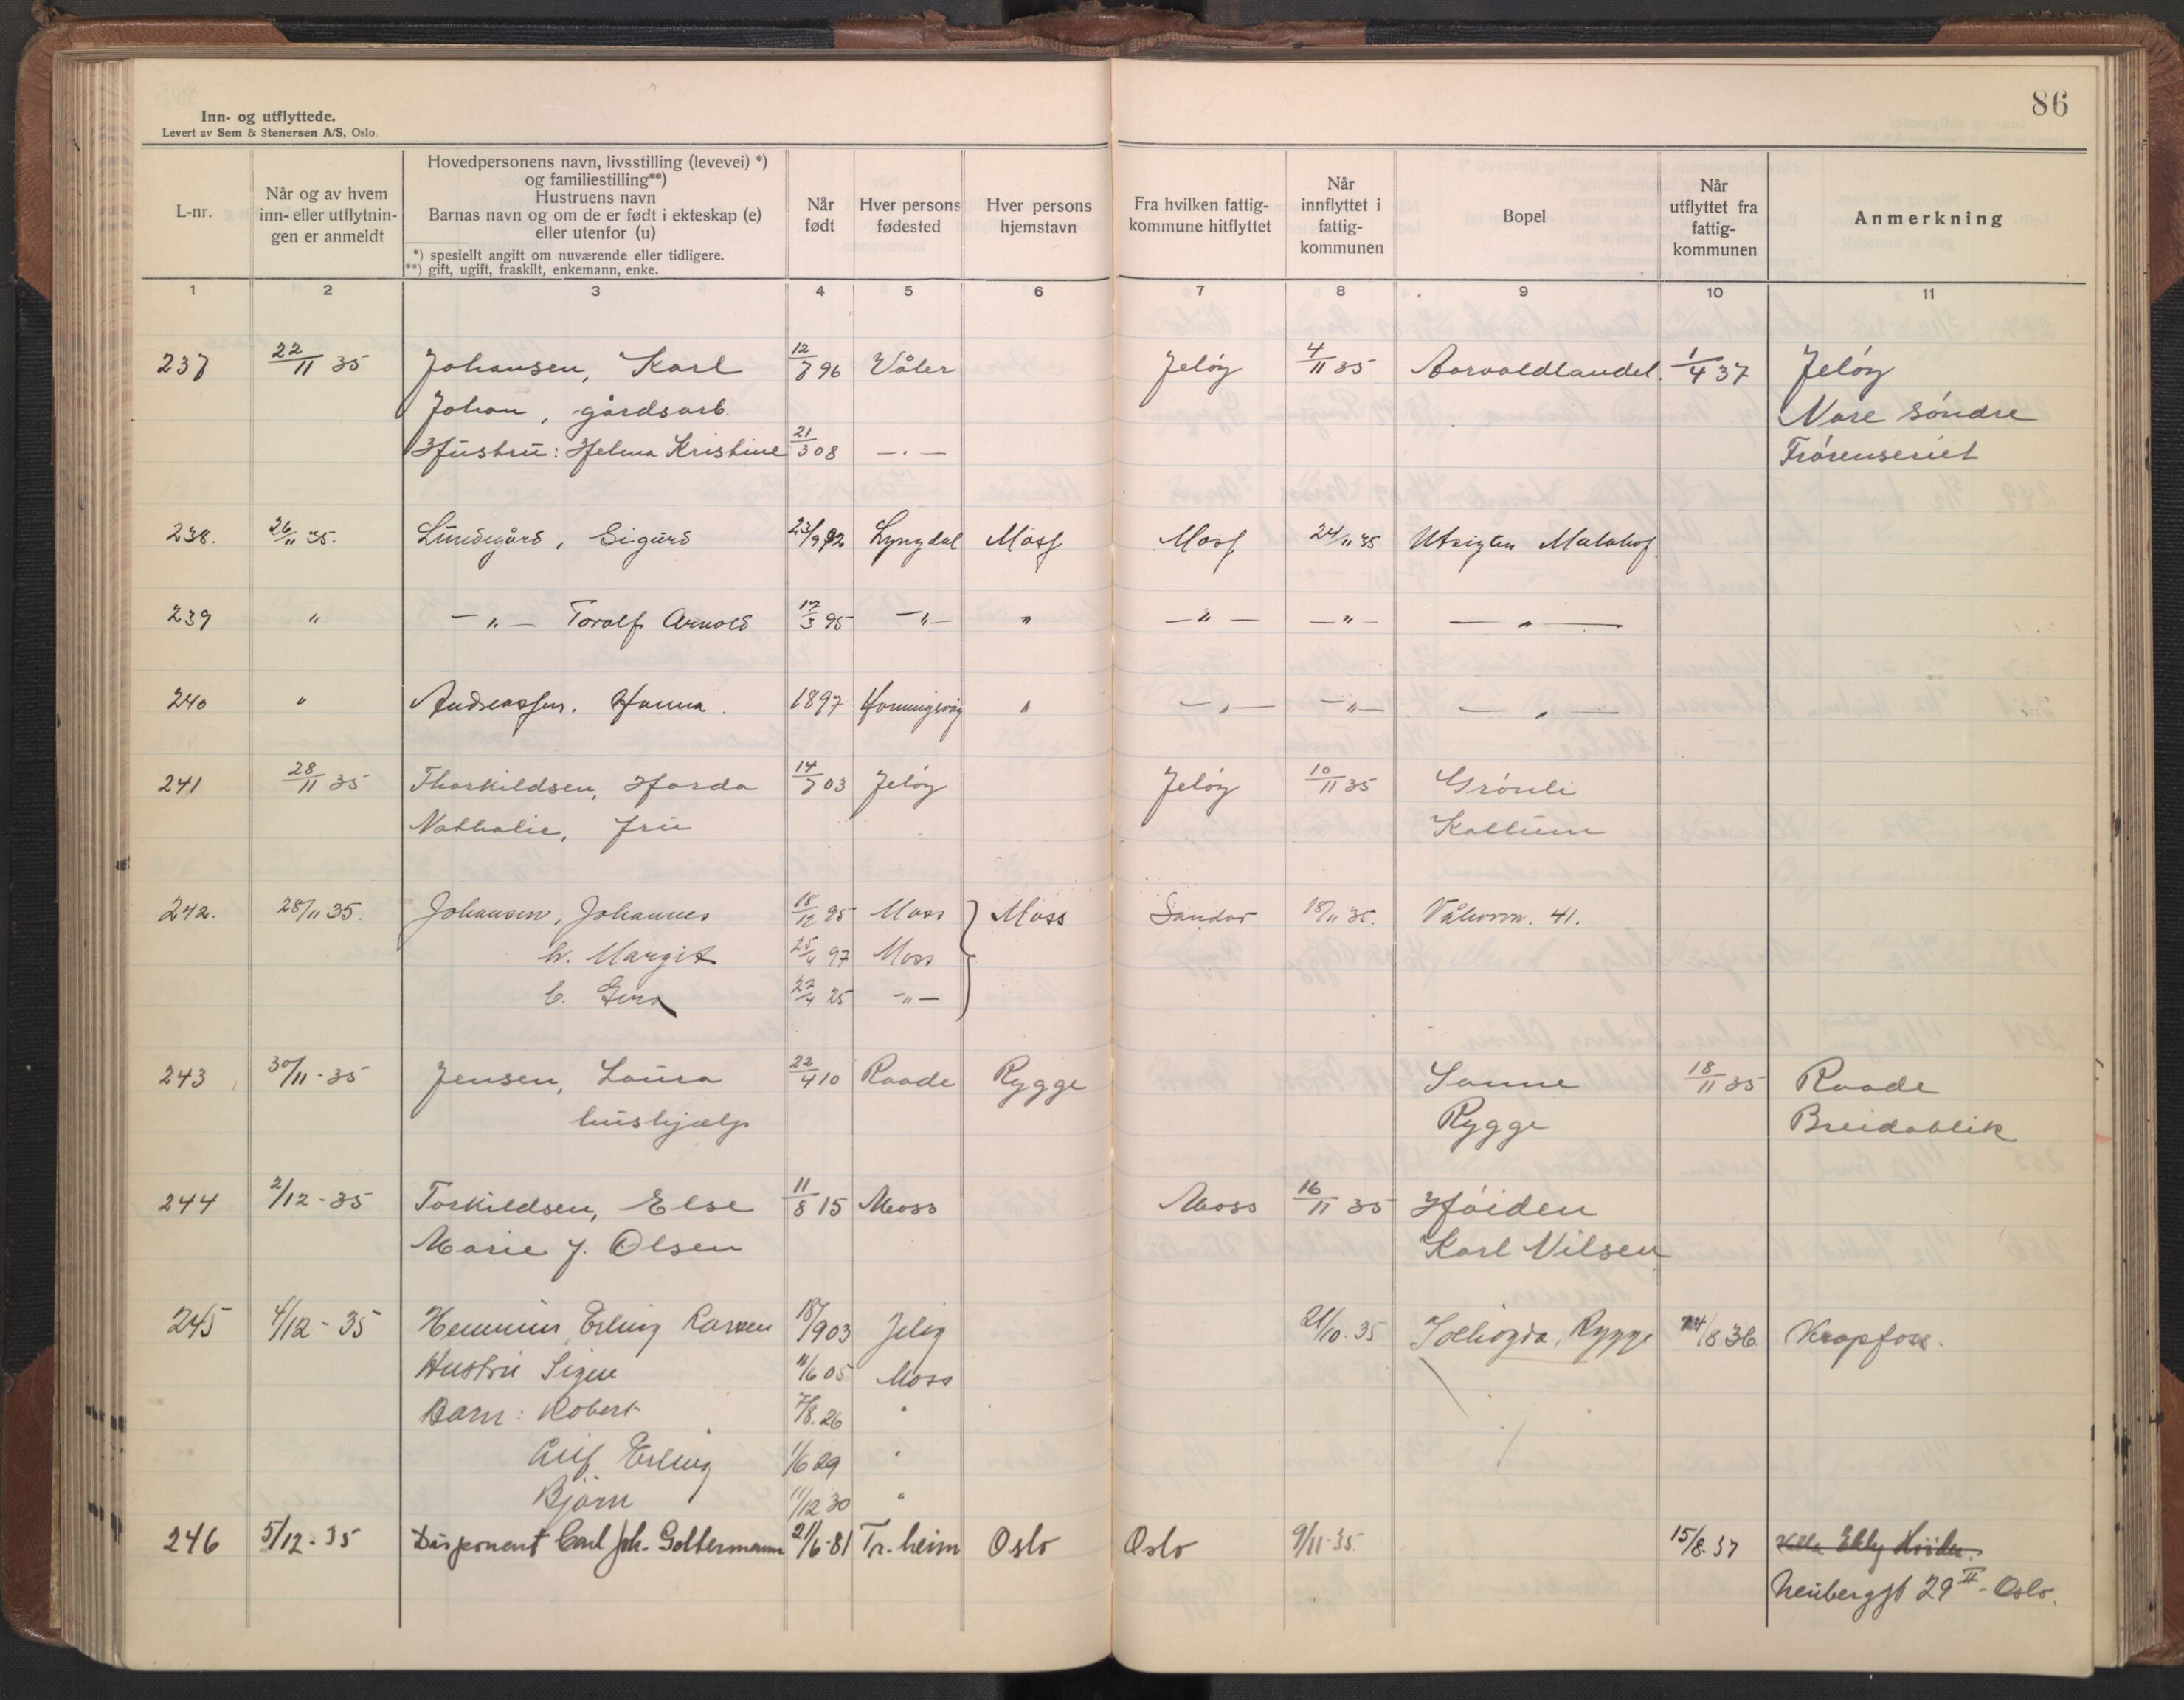 86
Inn- og utflyttede.
Levert av Sem & Stenersen A/S, Oslo.
L-nr.
Når og av hvem
inn- eller utflytnin-
gen er anmeldt
Hovedpersonens navn, livsstilling (levevei) *)
og familiestilling**)
Hustruens navn
Barnas navn og om de er født i ekteskap (e)
eller utenfor (u)
*) spesiellt angitt om nuværende eller tidligere.
**) gift, ugift, fraskilt, enkemann, enke.
Når
født
Hver persons
fødested
Hver persons
hjemstavn
Fra hvilken fattig-
kommune hitflyttet
Når
innflyttet i
fattig-
kommunen
Bopel
Når
utflyttet fra
fattig-
kommunen
Anmerkning
1 2 3 4 5 6 7 8 9 10 11
237 22/11 35 Johansen, Karl 12/7 96 Våler Jeløy 4/11 35 1/4 37 Jeløy
Johan, gårdsarb. Nore søndre
Hustru: Helma Kristine 21/3 08 —.—
238. 26/11 35. Lundegård, Sigurd 23/9 92 Lyngdal Moss Moss 24/11 35
239 " —"— Toralf Arnold 17/3 95 —"— " —"— —"— —"—
240 " Andreassen. Hanna. 1897 Honningsvåg " —"— —"— —"—
241 28/11 35 Thorkildsen, Harda 14/7 03 Jeløy Jeløy 10/11 35 Grönli
Nathalie, fru Kallum
242. 28/11 35. Johansen, Johannes 18/12 95 Moss Moss Sandar 18/11 35. 41.
h. Margit 25/4 97 Moss
b. 22/4 25 —"—
243 30/11-35 Jensen, Laura 22/4 10 Raade Rygge Sanne 18/11 35 Raade
hushjælp Rygge Breidablik
244 2/12-35 Torkildsen, Else 11/8 15 Moss Moss 16/11 35 Høiden
Marie f. Olsen Karl Nilsen
245 4/12-35 Erling 18/9 03 Jeløy 21/10. 35 Solhøgda, Rygge 24/8 36 Krapfoss.
Hustru Signe 11/6 05 Moss
Barn: Robert 7/8. 26 "
Erling 1/6 29 "
Bjørn 11/12 30 "
246 5/12-35 Disponent Carl Joh. Goltermann 21/6-81 Tr.heim Oslo Oslo 9/11-35 15/8-37 Villa Ekly Høiden.
Neubergst 29 II - Oslo.